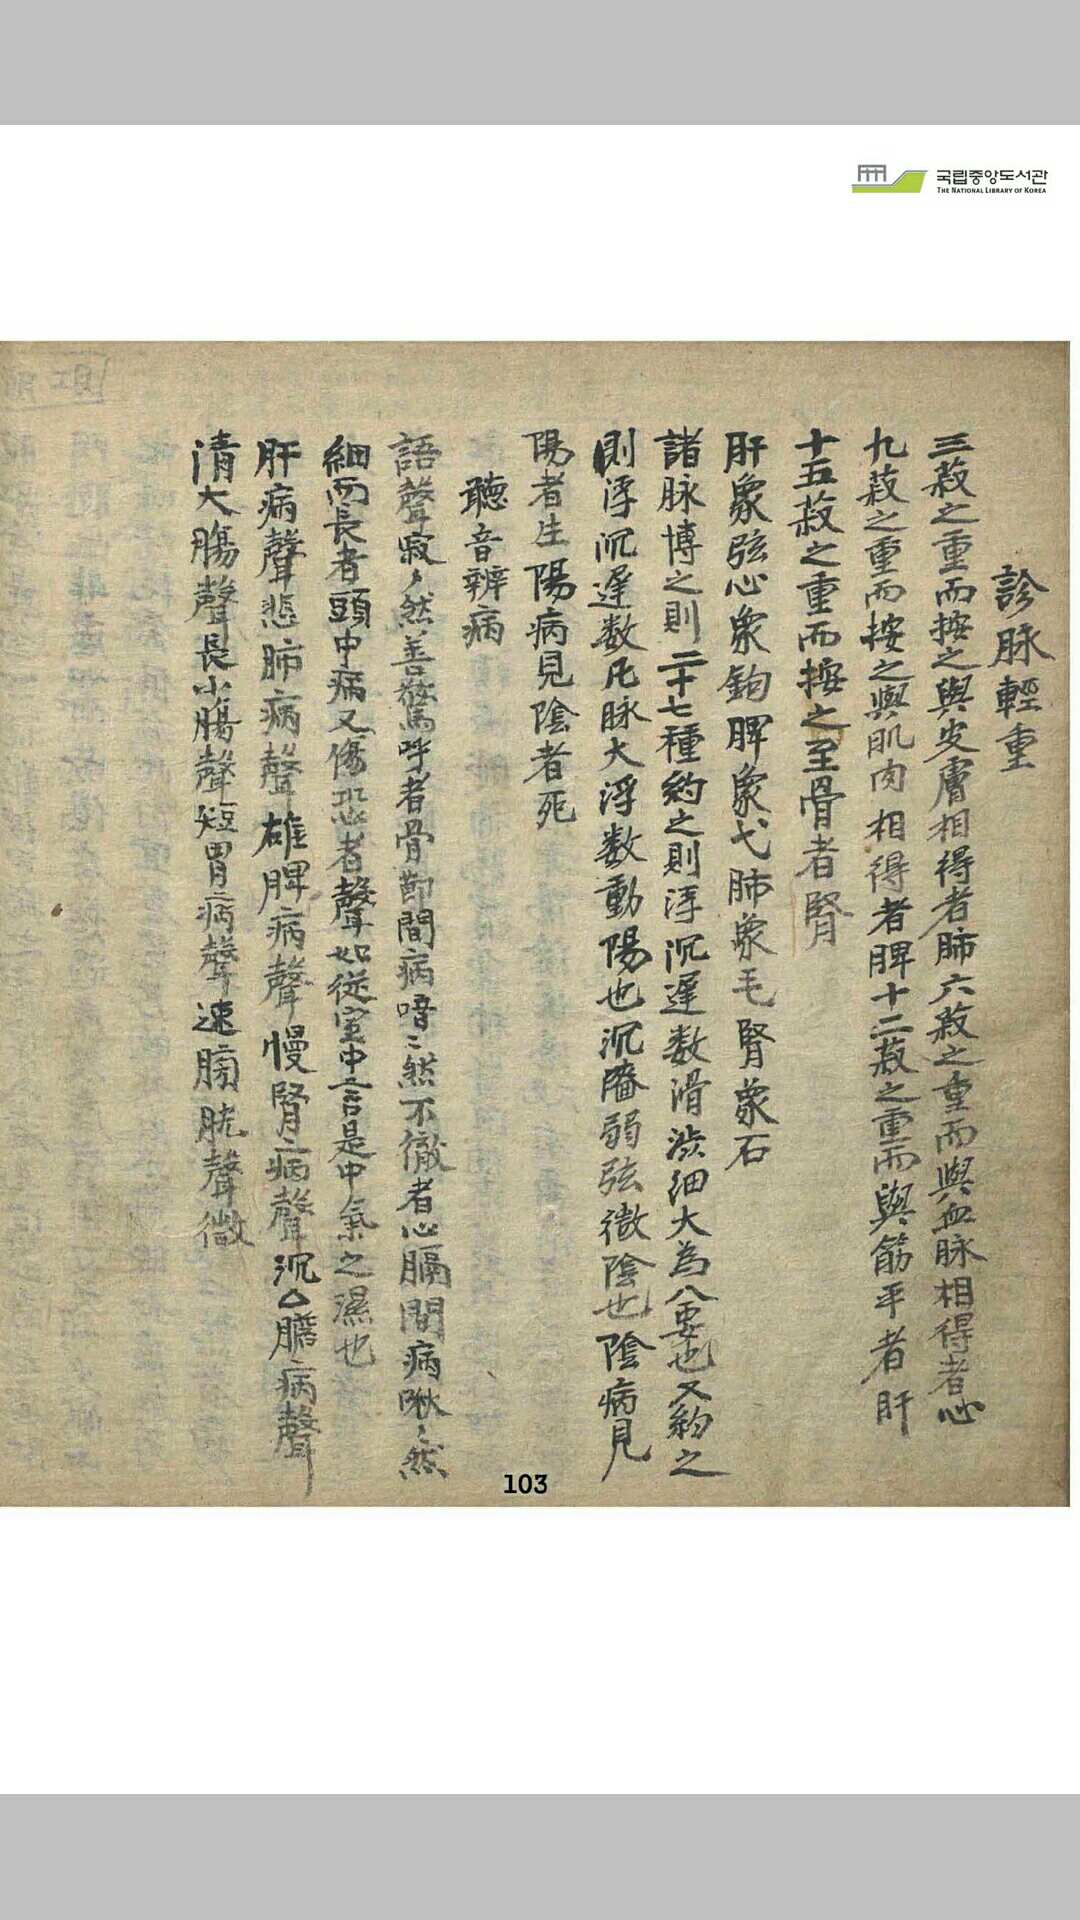 국립중앙도서관
THE NATIONAL LIBRARY OF KOREA
診脉輕重
三菽之重而按之與皮膚相得者肺六菽之重而與血脉相得者心
九菽之重而按之與肌肉相得者脾十二菽之重而與筋平者肝
十五菽之重而按之至骨者腎
肝象弦心象鉤脾象弋肺象毛腎象石
諸脉博之則二十七種約之則浮沉遲数滑澁細大為八要也又約之
則浮沉遲数凡脉大浮数動陽也沉濇弱弦微陰也陰病見
陽者生陽病見陰者死
聽音辨病
語聲寂〻然善驚呼者骨節間病喑〻然不徹者心膈間病啾〻然
細而長者頭中病又傷恐者聲如從室中言是中氣之濕也
肝病聲悲肺病聲雄脾病聲慢腎病聲沉胆病聲
清大膓聲長小膓聲短胃病聲速膀胱聲微
103